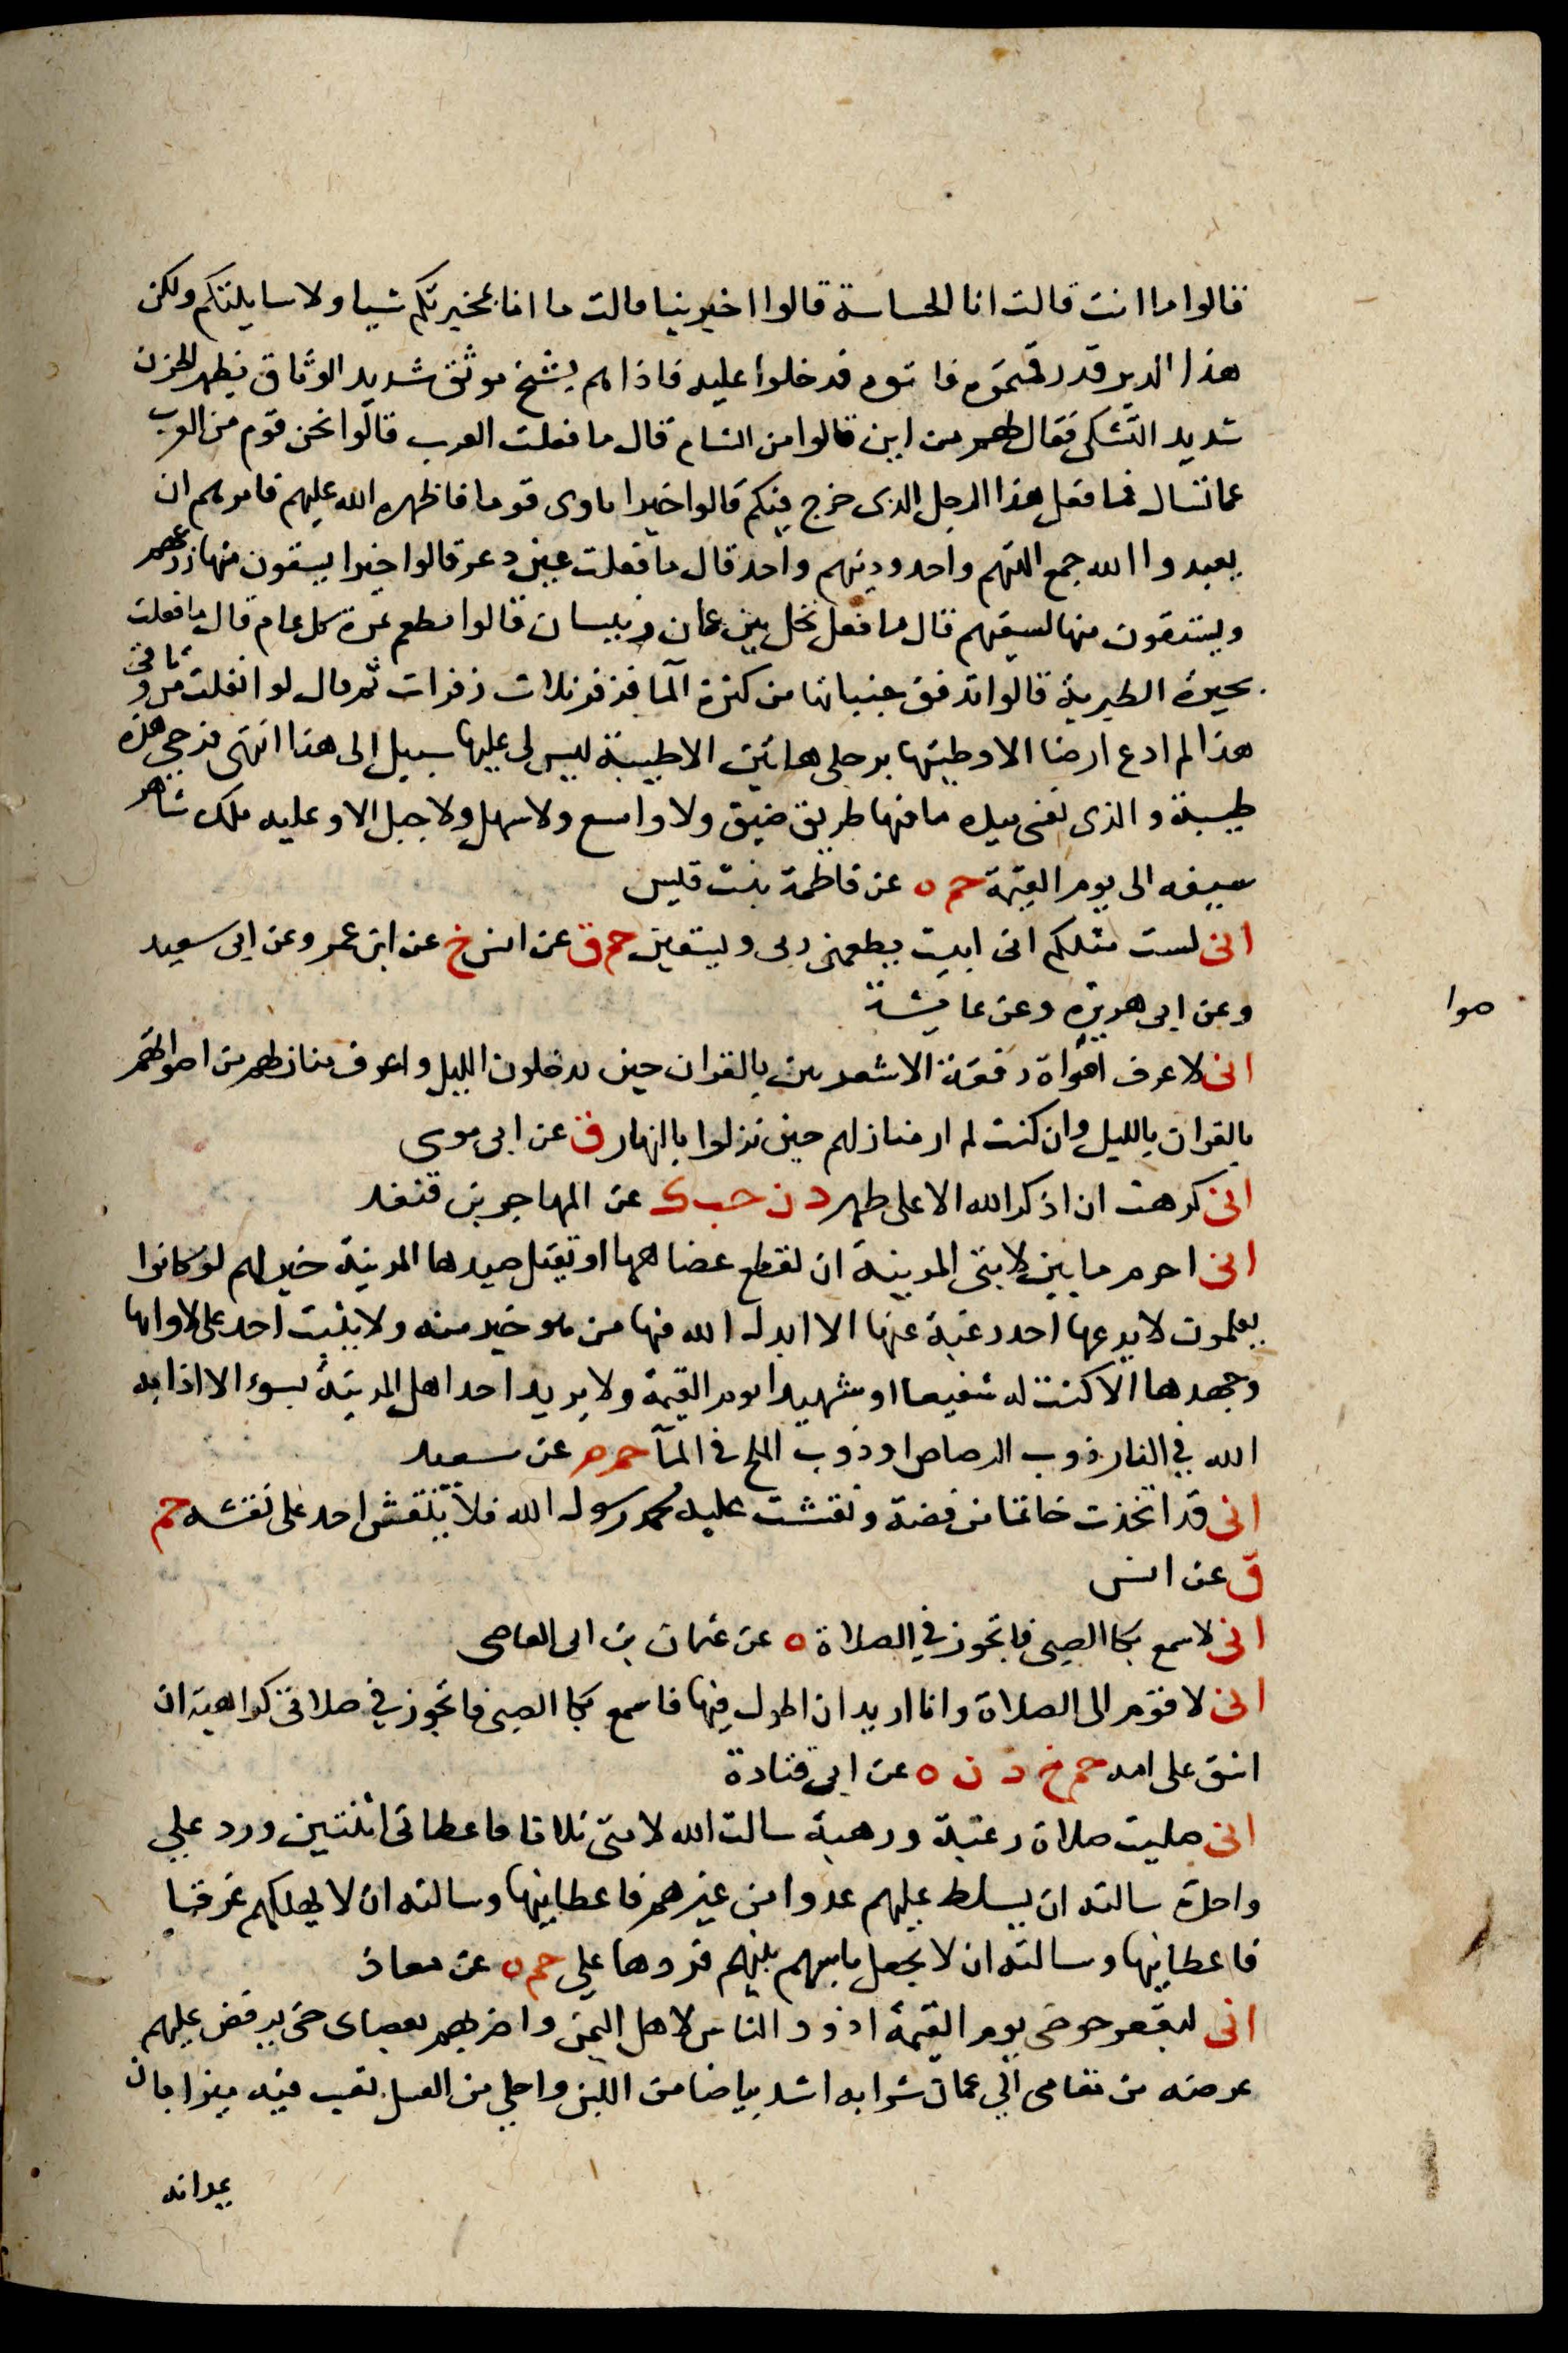 قالوا ما انت قالت انا الجساسة قالوا اخبرينا قالت ما انا بمخبرتكم شيا ولا سايلتكم ولكن
هذا الدير قد رمقتموه فاتوه فدخلوا عليه فاذا هم بشيخ موثق شديد الوثاق يظهر الحزن
شديد التشكى فقال لهم من اين قالوا من الشام قال ما فعلت العرب قالوا نحن قوم من العرب
عما تسال فما فعل هذا الرجل الذى خرج فيكم قالوا خيرا ناوى قوما فاظهره الله عليهم فامرهم ان
يعبدوا الله جمع الههم واحد ودينهم واحد قال ما فعلت عين زغر قالوا خيرا يسقون منها زرعهم
ويستقون منها لسقيهم قال ما فعل نخل بين عمان وبيسان قالوا مطعم ثمره كل عام قال ما فعلت
بحيرة الطبرية قالوا تدفق جنباتها من كثرة المآ فزفر ثلاث زفرات ثم قال لو انفلت من وثاقى
هذا لم ادع ارضا الا وطيتها برجلى هاتين الا طيبة ليس لى عليها سبيل الى هذا انتهى فرحى هذه
طيبة والذى نفسى بيده ما فيها طريق ضيق ولا واسع ولا سهل ولا جبل الا وعليه ملك شاهر
سيفه الى يوم القيمة حم ه عن فاطمة بنت قيس
انى لست مثلكم انى ابيت يطعمنى ربى ويسقين حم ق عن انس خ عن ابن عمر وعن ابى سعيد
وعن ابى هريرة وعن عايشة
صوا
انى لاعرف اصواة رفقة الاشعريين بالقران حين يدخلون الليل واعرف منازلهم من اصواتهم
بالقران بالليل وان كنت لم ار منازلهم حين نزلوا بالنهار ق عن ابى موسى
انى كرهت ان اذكر الله الا على طهر د ن حب ك عن المهاجر بن قنفد
انى احرم ما بين لابتى المدينة ان يقطع عضاهها او يقتل صيدها المدينة خير لهم لو كانوا
يعلمون لا يدعها احد رغبة عنها الا ابدل الله فيها من هو خير منه ولا يثبت احد على لاوايها
وجهدها الا كنت له شفيعا او شهيدا يوم القيمة ولا يريد احد اهل المدينة بسوء الا اذابه
الله في النار ذوب الرصاص او ذوب الملح في المآ حم م عن سعيد
انى قد اتخذت خاتما من فضة ونقشت عليه محمد رسول الله فلا ينقش احد على نقشه حم
ق عن انس
انى لاسمع بكا الصبى فاتجوز في الصلاة ه عن عثمان بن ابى العاصى
انى لاقوم الى الصلاة وانا اريد ان اطول فيها فاسمع بكا الصبى فاتجوز في صلاتى كراهية ان
اشق على امه حم خ د ن ه عن ابى قتادة
انى صليت صلاة رغبة ورهبة سالت الله لامتى ثلاثا فاعطانى اثنتين ورد علي
واحدة سالته ان يسلط عليهم عدوا من غيرهم فاعطانيها وسالته ان لا يهلكهم غرقا
فاعطانيها وسالته ان لا يجعل باسهم بينهم فردها علي حم ه عن معاذ
انى لبعقر حوضى يوم القيمة اذود الناس لاهل اليمن واضربهم بعصاى حتى يرفض عليهم
عرضه من مقامى الي عمان شرابه اشد بياضا من اللبن واحلى من العسل يغب فيه ميزابان
يمدانه